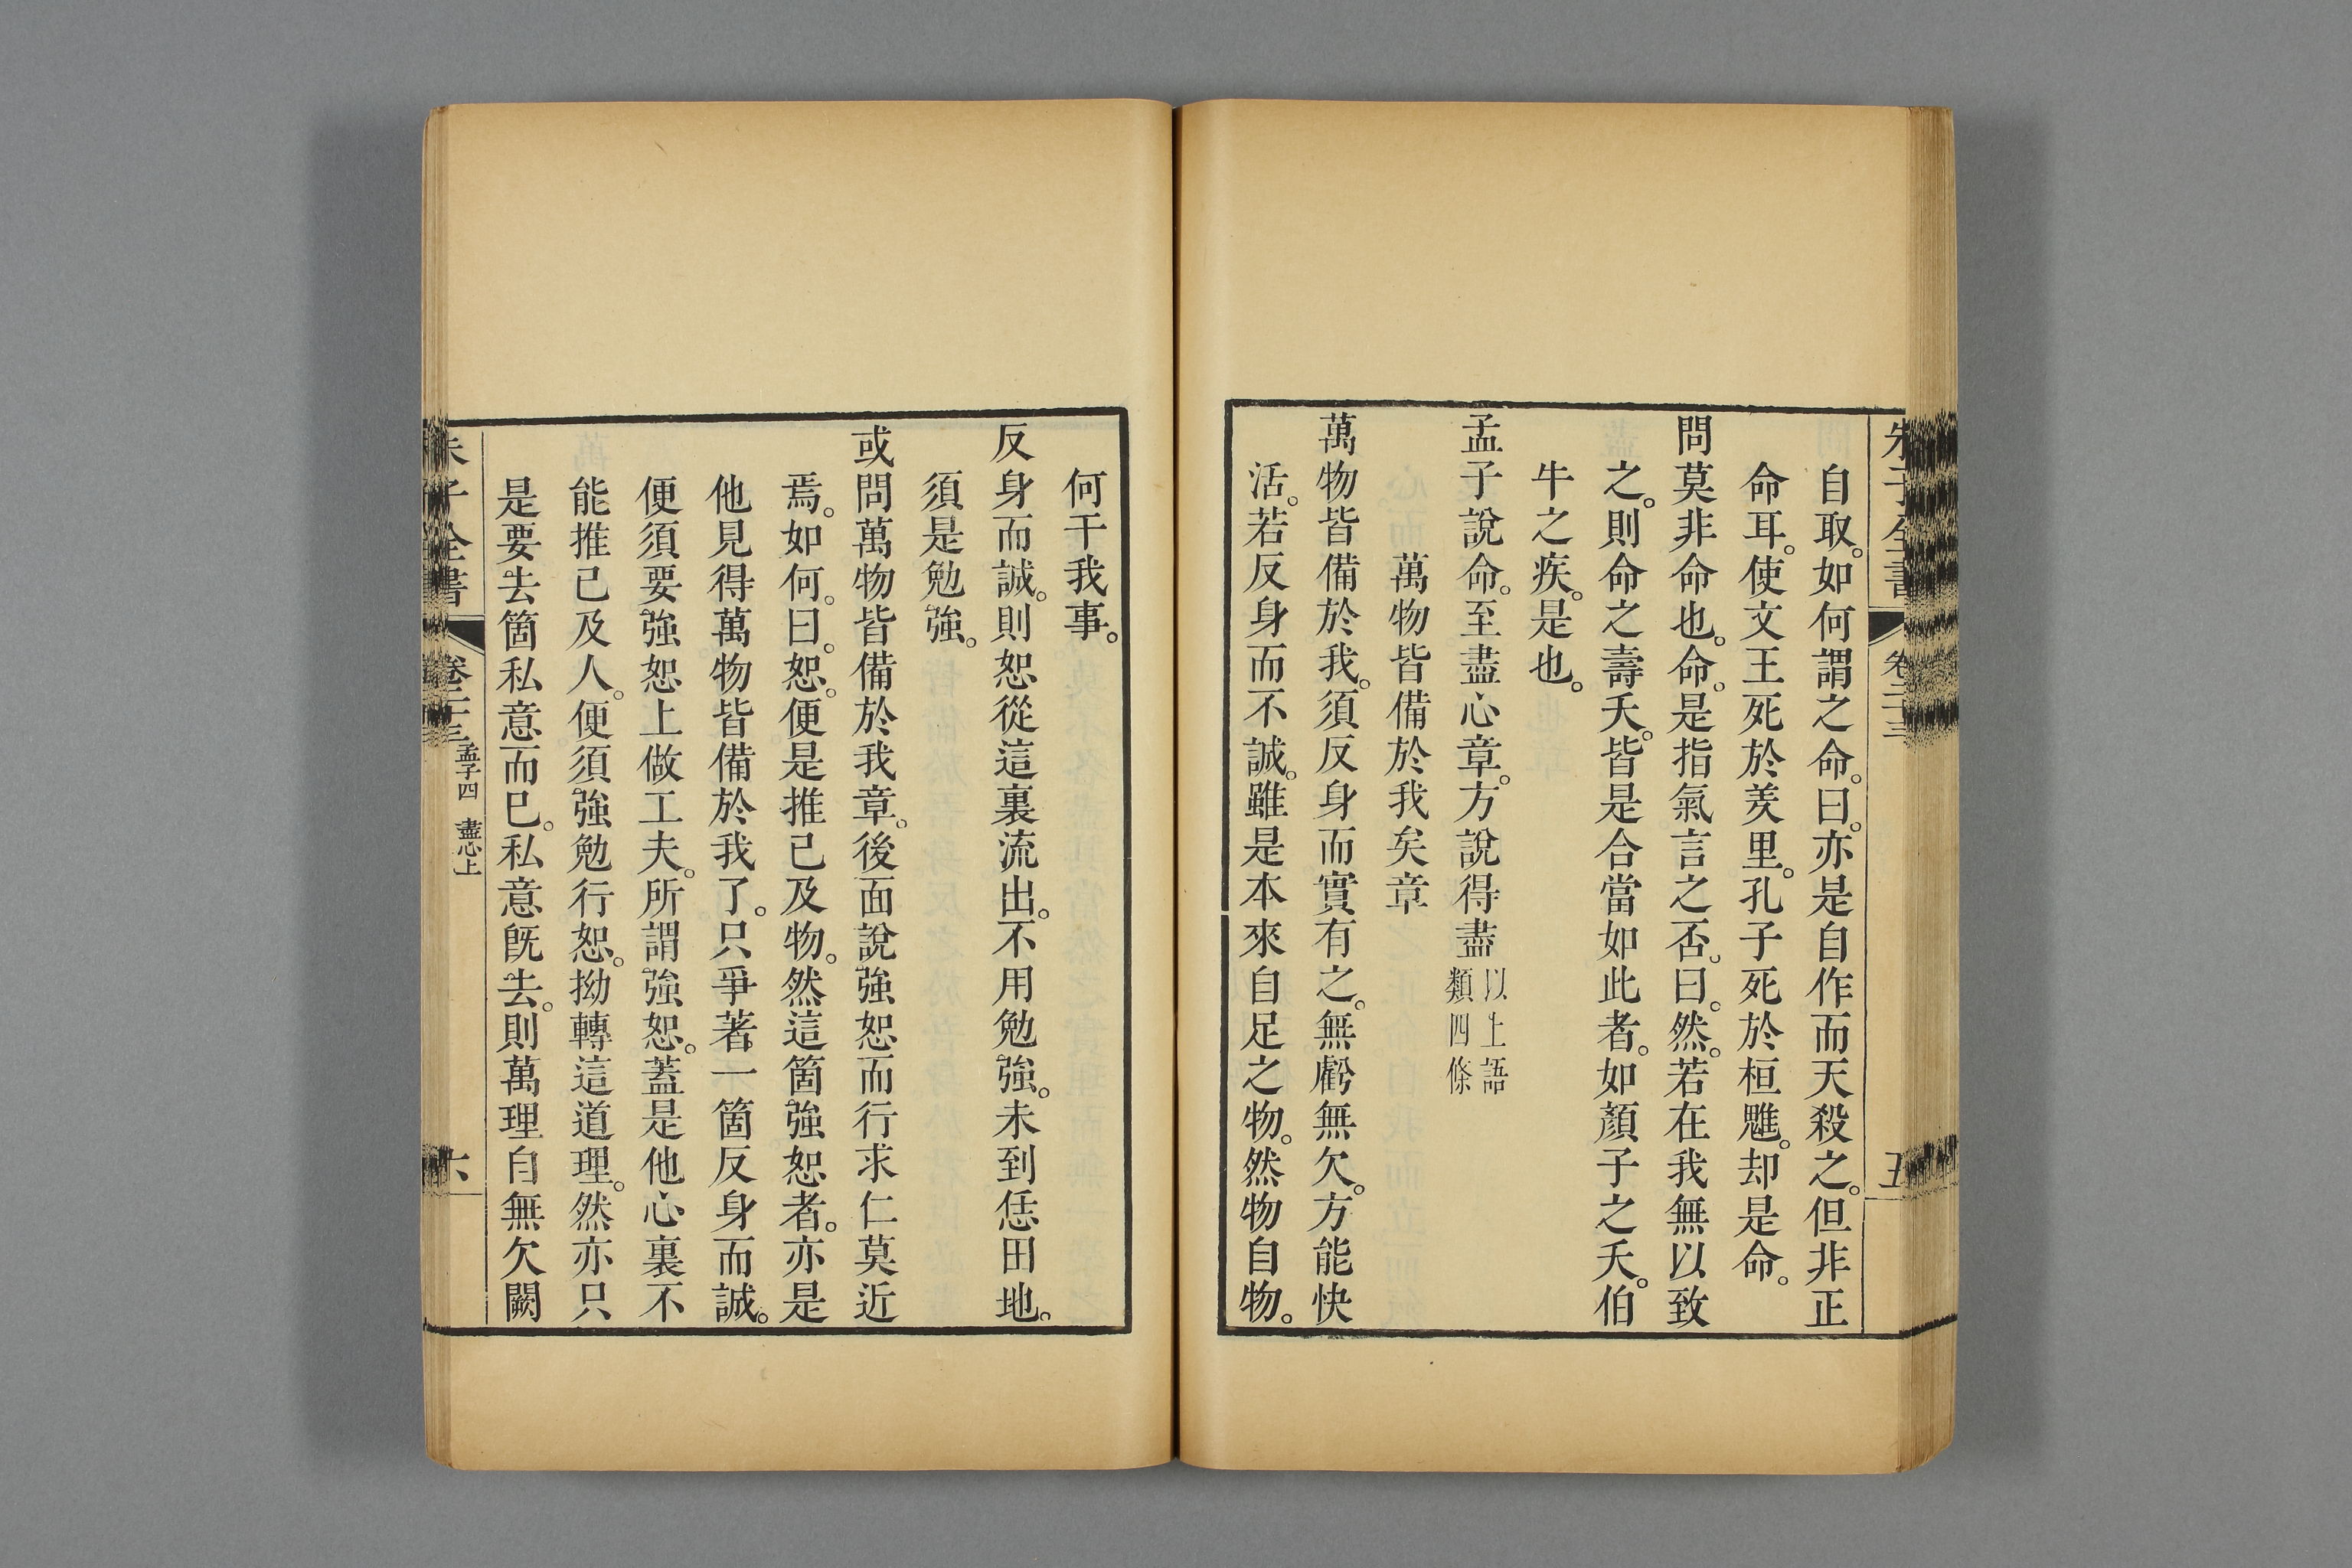 朱子全書 卷二十三 五
自取。如何謂之命。曰。亦是自作而天殺之。但非正
命耳。使文王死於羑里。孔子死於桓魋。却是命。
問莫非命也。命。是指氣言之否。曰。然。若在我無以致
之。則命之壽夭。皆是合當如此者。如顏子之夭。伯
牛之疾。是也。
孟子說命。至盡心章。方說得盡以上語類四條
萬物皆備於我矣章
萬物皆備於我。須反身而實有之。無虧無欠。方能快
活。若反身而不誠。雖是本來自足之物。然物自物。
何干我事。
反身而誠。則恕從這裏流出。不用勉強。未到恁田地。
須是勉強。
或問萬物皆備於我章。後面說強恕而行求仁莫近
焉。如何。曰。恕。便是推己及物。然這箇強恕者。亦是
他見得萬物皆備於我了。只爭著一箇反身而誠。
便須要強恕上做工夫。所謂強恕。蓋是他心裏不
能推己及人。便須強勉行恕。拗轉這道理。然亦只
是要去箇私意而已。私意旣去。則萬理自無欠闕
朱子全書 卷二十三 孟子四 盡心上 六